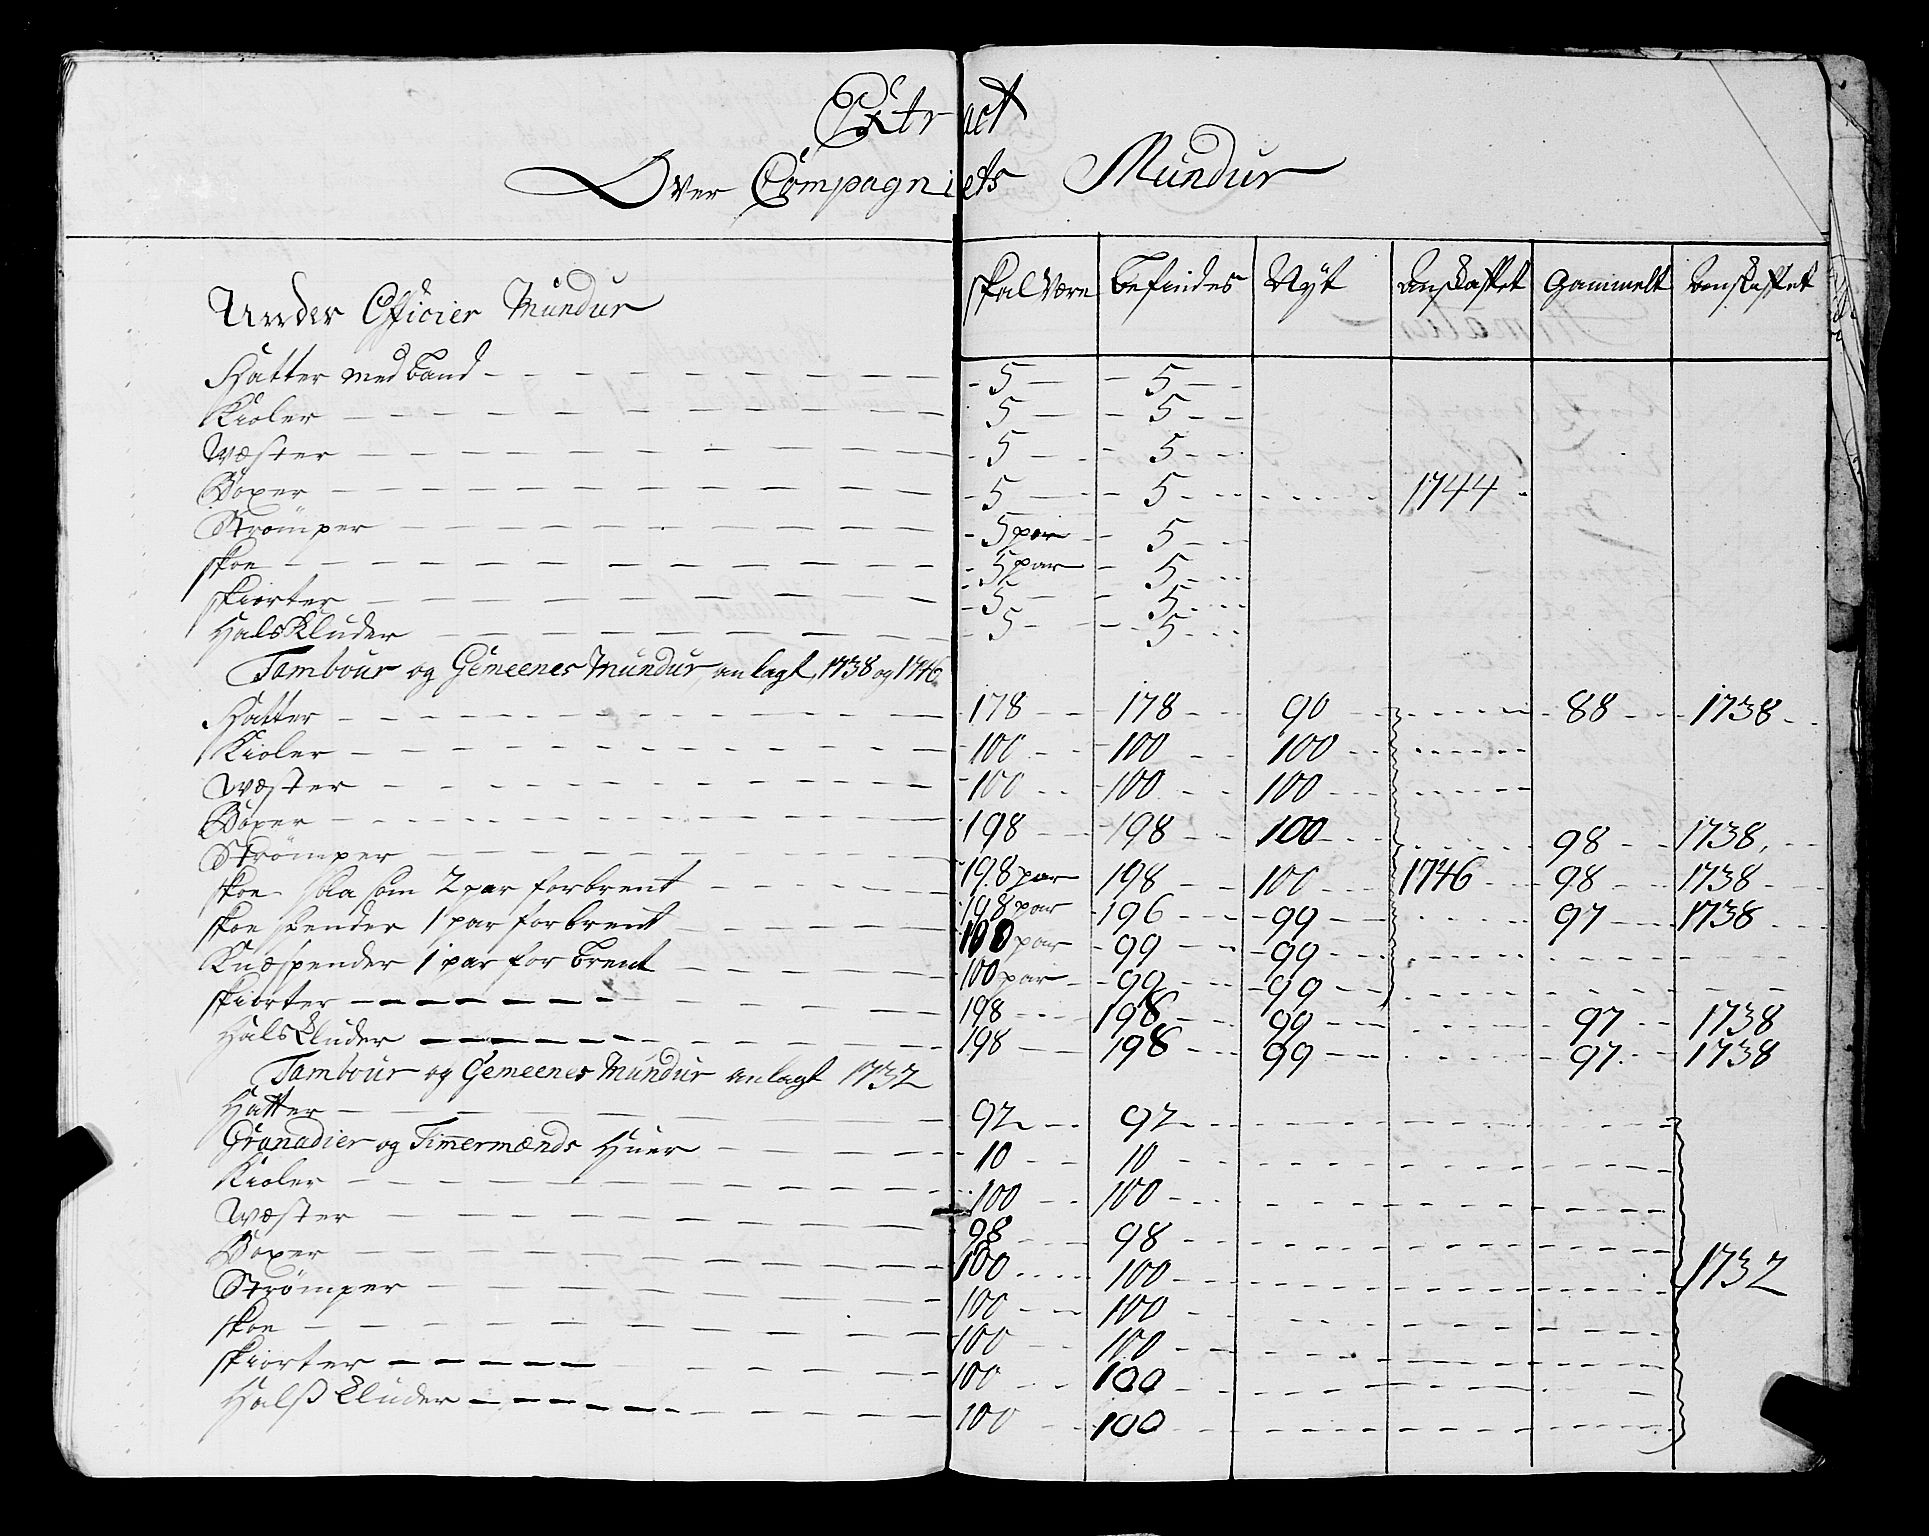 Extract
Over Compagniets Mundur
skal være befindes Nÿt anskaffet Gammelt anskaffet
Under Officier Mundur
Hatter med band 5 5
Kioler 5 5
Wæster 5 5
Boxer 5 5 1744
Strømper 5 par 5
skoe 5 par 5
skiorter 5 5
HalsKluder 5 5
Tambour og Gemeenes Mundur anlagt 1738 og 1746
Hatter 178 178 90 88 1738
Kioler 100 100 100
Wæster 100 100 100
Boxer 198 198 100 98 1738
Strømper 198 par 198 100 1746 98 1738
skoe saasom 2 par forbrent 198 par 196 99 97 1738
skoe spender 1 par forbrent 100 par 99 99
Knæspender 1 par forbrent 100 par 99 99
skiorter 198 198 99 97 1738
Halskluder 198 198 99 97 1738
Tambour og Gemeenes Mundur anlagt 1732
Hatter 92 92
Granadier og Timermænds Huer 10 10
Kioler 100 100
Wæster 98 98
Boxer 100 100 1732
Strømper 100 100
skoe 100 100
skiorter 100 100
Halsskluder 100 100